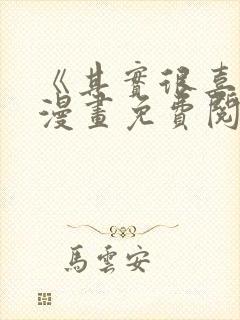 《其實很喜
漫畫免費閱
馬雲安